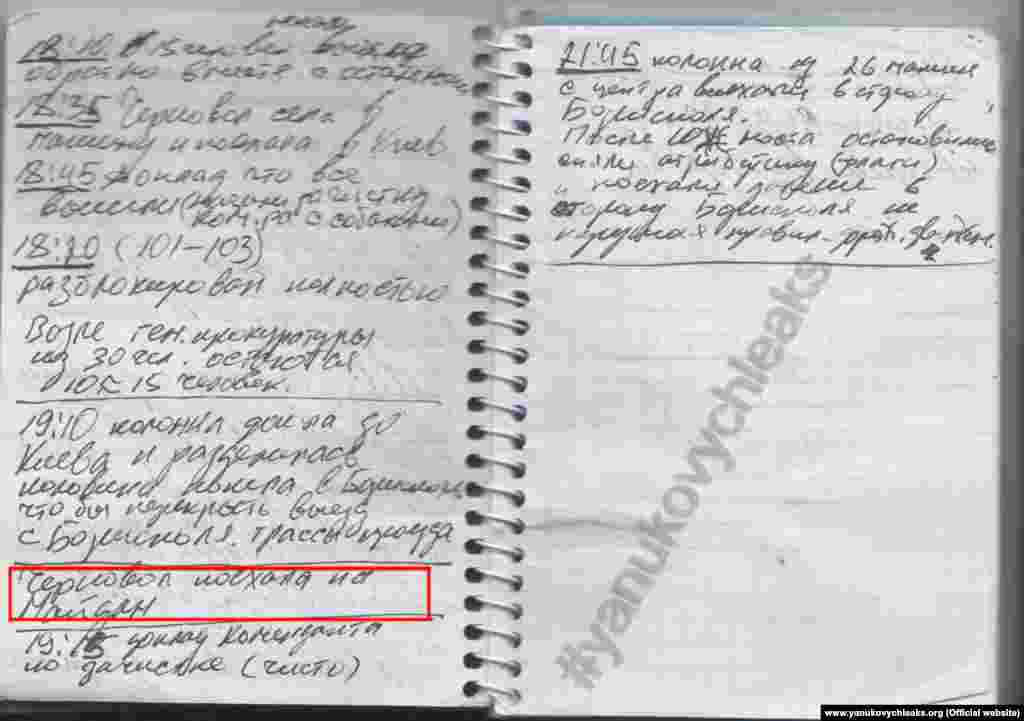 18:10 15 человек
обратно вместе с остальными
18:35 Черновол села в
машину и поехала в Киев
18:45 доклад что все
вышли
18:20 (101-103)
разблокирован полностью
Возле ген. прокуратуры
из 30 чел. остались
10-15 человек.
19:10 колонна дошла до
Киева и разделилась
половина пошла в Борисполь
что бы перекрыть выезд
с Борисполя.
Черновол поехала на
Майдан
19:15 доклад коменданта
по зачистке (чисто)
21:45 колонна из 26 машин
с центра выехали в сторону
Борисполя.
После поста остановились
сняли атрибутику (флаги)
и поехали дальше в
сторону Борисполя не
нарушая правил
#yanukovychleaks
www.yanukovychleaks.org (Official website)